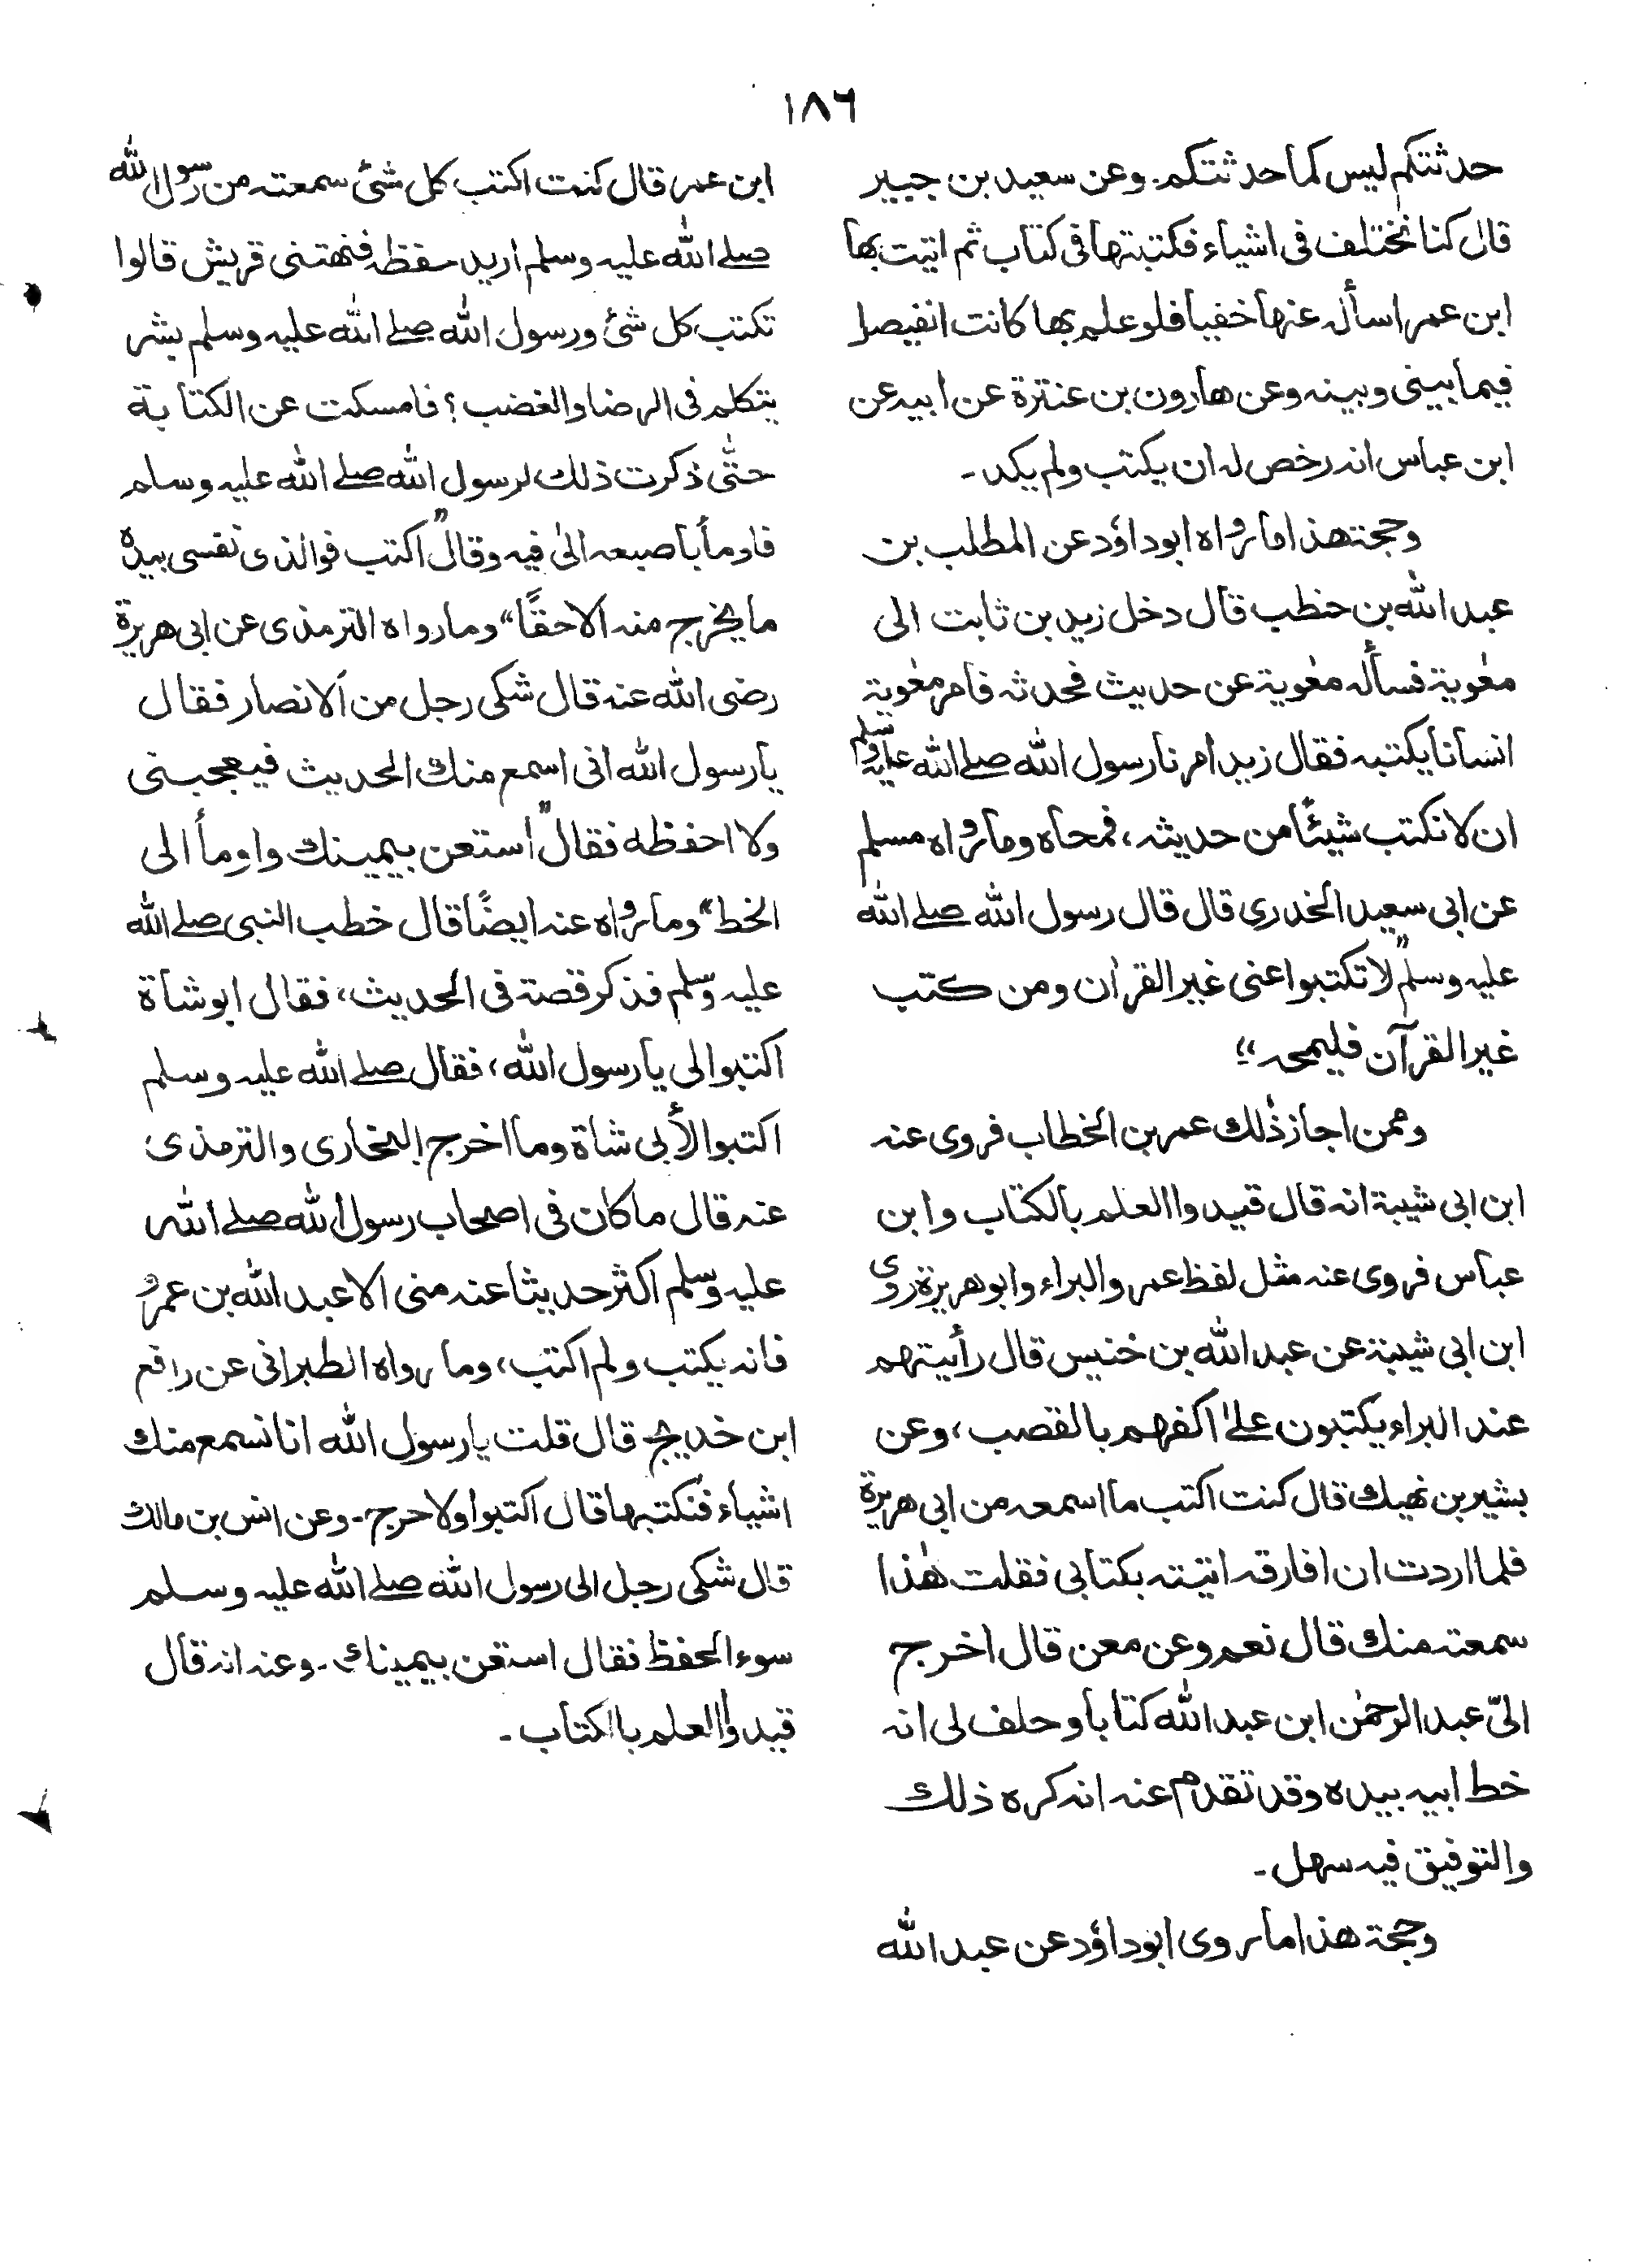 ١٨٦
حدثتكم ليس كما حدثتكم. وعن سعيد بن جبير
قال كنا نختلف فى اشياء فكتبتها فى كتاب ثم اتيت بها
ابن عمر اسأله عنها خفيا فلو علم بها كانت الفيصل
فيما بينى وبينه وعن هارون بن عنترة عن ابيه عن
ابن عباس انه رخص له ان يكتب ولم يكد۔
وحجة هذا ما رواه ابو داؤد عن المطلب بن
عبد الله بن حنطب قال دخل زيد بن ثابت الى
معٰوية فسأله معٰوية عن حديث فحدثه فامر معٰوية
انسانا يكتبه فقال زيد امرنا رسول الله صلے الله عليه وسلم
ان لا نكتب شيئًا من حديثه، فمحاه وما رواه مسلم
عن ابى سعيد الخدرى قال قال رسول الله صلے الله
عليه وسلم "لا تكتبوا عنى غير القراٰن ومن كتب
غير القرآن فليمحه"
وممن اجاز ذٰلك عمر بن الخطاب فروى عنه
ابن ابى شيبة انه قال قيدوا العلم بالكتاب وابن
عباس فروى عنه مثل لفظ عمر والبراء وابو هريرة روى
ابن ابى شيبة عن عبد الله بن خنيس قال رأيتهم
عند البراء يكتبون علىٰ اكفهم بالقصب، وعن
بشير بن نهيك قال كنت اكتب ما اسمعه من ابى هريرة
فلما اردت ان افارقه اتيته بكتابى فقلت هٰذا
سمعته منك قال نعم وعن معن قال اخرج
الىّ عبد الرحمٰن ابن عبد الله كتابا وحلف لى انه
خط ابيه بيده وقد تقدم عنه انه كره ذلك
والتوفيق فيه سهل۔
وحجة هذا ما روى ابو داؤد عن عبد الله
ابن عمر قال كنت اكتب كل شئ سمعته من رسول الله
صلے الله عليه وسلم اريد حفظه فنهتنى قريش قالوا
تكتب كل شئ ورسول الله صلے الله عليه وسلم بشر
يتكلم فى الرضا والغضب؟ فامسكت عن الكتابة
حتّى ذكرت ذلك لرسول الله صلے الله عليه وسلم
فاومأ باصبعه الىٰ فيه وقال "اكتب فوالذى نفسى بيده
ما يخرج منه الا حقًا" وما رواه الترمذى عن ابى هريرة
رضى الله عنه قال شكى رجل من الانصار فقال
يا رسول الله انى اسمع منك الحديث فيعجبنى
ولا احفظه فقال "استعن بيمينك واومأ الى
الخط" وما رواه عنه ايضًا قال خطب النبى صلے الله
عليه وسلم فذكر قصة فى الحديث، فقال ابو شاة
اكتبوا لى يا رسول الله، فقال صلے الله عليه وسلم
اكتبوا لأبى شاة وما اخرج البخارى والترمذى
عنه قال ما كان فى اصحاب رسول الله صلے الله
عليه وسلم اكثر حديثا عنه منى الا عبد الله بن عمرو
فانه يكتب ولم اكتب، وما رواه الطبرانى عن رافع
ابن خديج قال قلت يا رسول الله انا نسمع منك
اشياء فنكتبها قال اكتبوا ولا حرج۔ وعن انس بن مالك
قال شكى رجل الى رسول الله صلے الله عليه وسلم
سوء الحفظ فقال استعن بيمينك۔ وعنه انه قال
قيدوا العلم بالكتاب۔